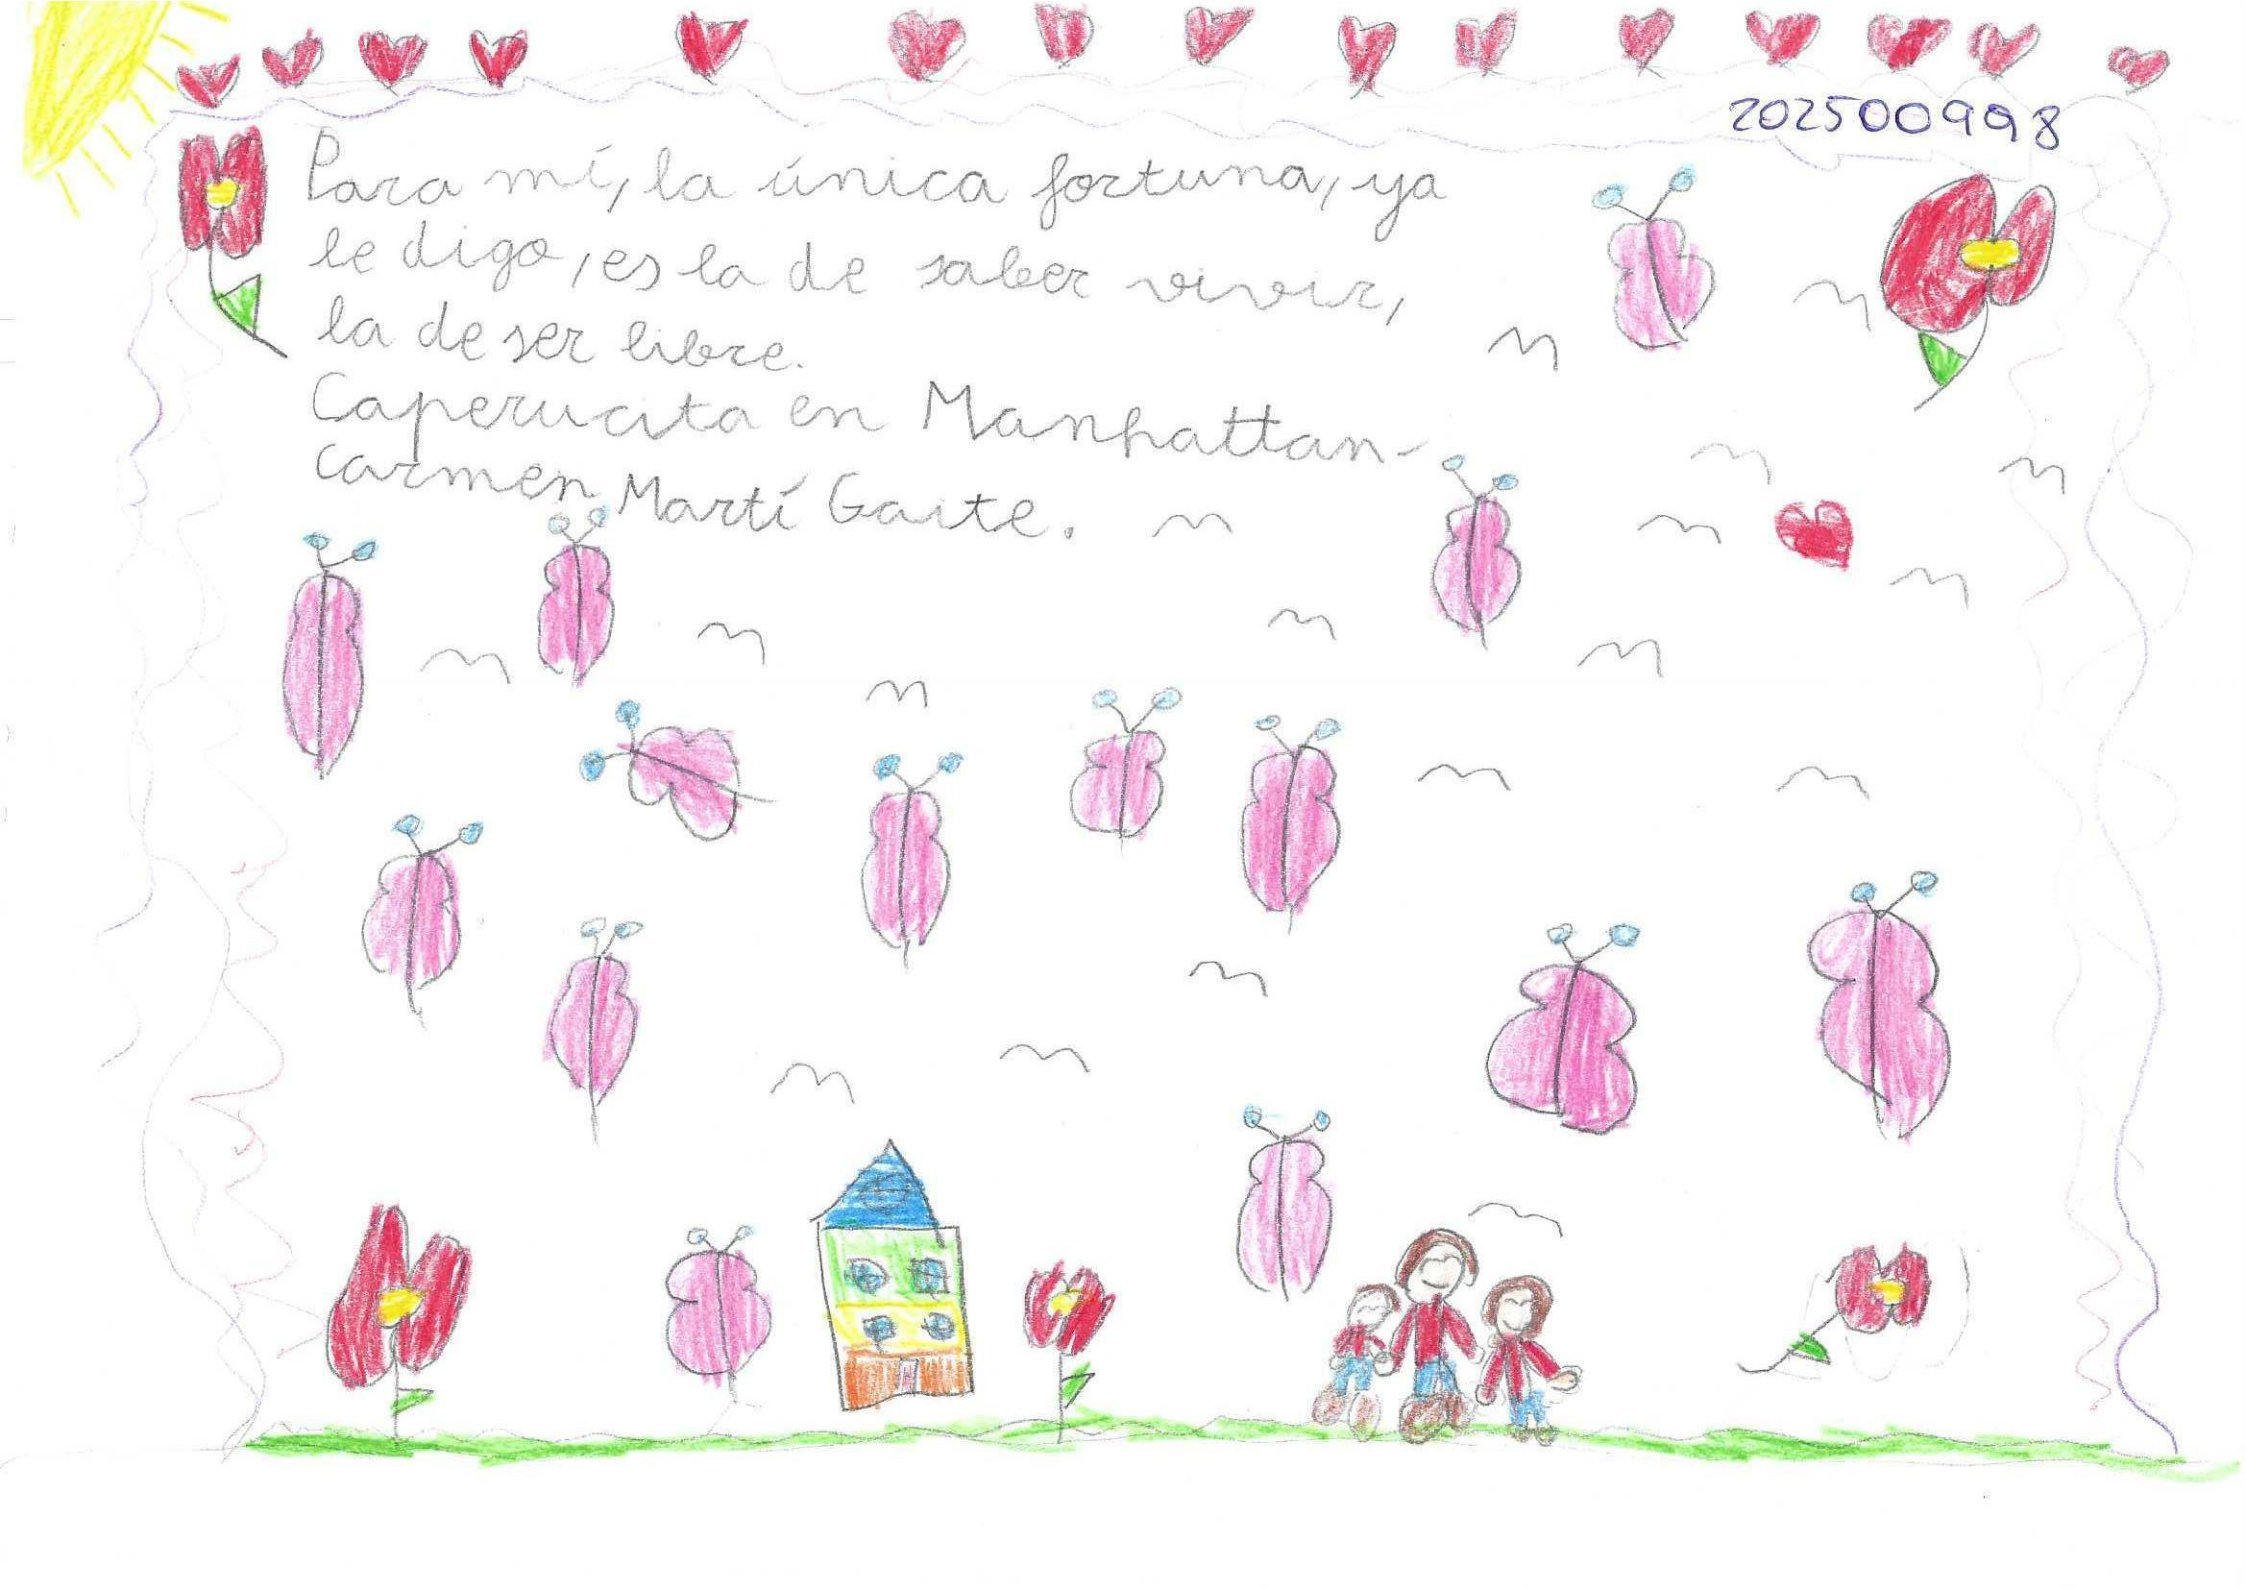 202500998
Para mí, la única fortuna, ya
le digo, es la de saber vivir,
la de ser libre.
Caperucita en Manhattan-
Carmen Martí Gaite.